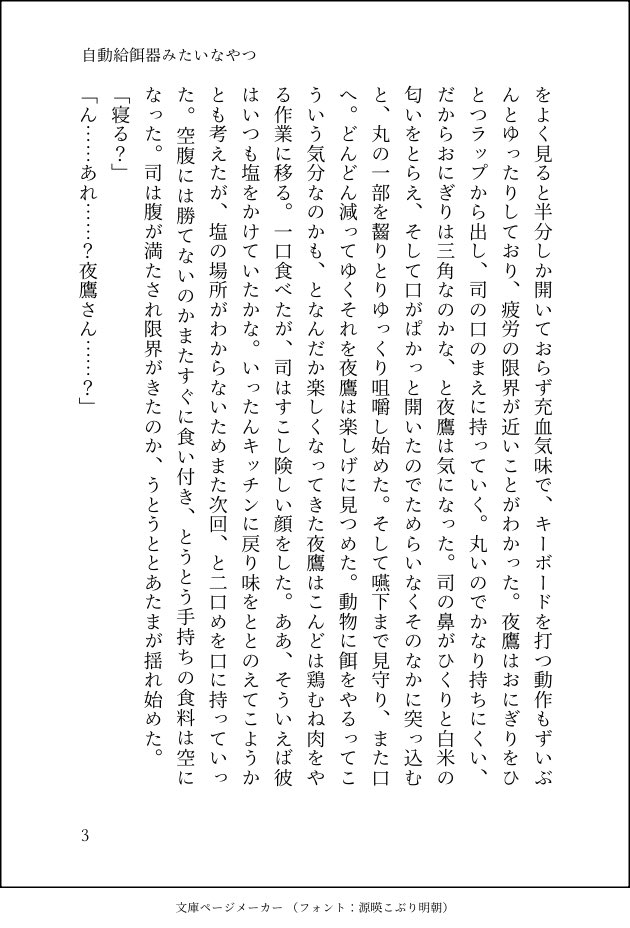 自動給餌器みたいなやつ
をよく見ると半分しか開いておらず充血気味で、キーボードを打つ動作もずいぶ
んとゆったりしており、疲労の限界が近いことがわかった。夜鷹はおにぎりをひ
とつラップから出し、司の口のまえに持っていく。丸いのでかなり持ちにくい、
だからおにぎりは三角なのかな、と夜鷹は気になった。司の鼻がひくりと白米の
匂いをとらえ、そして口がぱかっと開いたのでためらいなくそのなかに突っ込む
と、丸の一部を齧りとりゆっくり咀嚼し始めた。そして嚥下まで見守り、また口
へ。どんどん減ってゆくそれを夜鷹は楽しげに見つめた。動物に餌をやるってこ
ういう気分なのかも、となんだか楽しくなってきた夜鷹はこんどは鶏むね肉をや
る作業に移る。一口食べたが、司はすこし険しい顔をした。ああ、そういえば彼
はいつも塩をかけていたかな。いったんキッチンに戻り味をととのえてこようか
とも考えたが、塩の場所がわからないためまた次回、と二口めを口に持っていっ
た。空腹には勝てないのかまたすぐに食い付き、とうとう手持ちの食料は空に
なった。司は腹が満たされ限界がきたのか、うとうととあたまが揺れ始めた。
「寝る？」
「ん……あれ……？夜鷹さん……？」
3
文庫ページメーカー（フォント：源暎こぶり明朝）